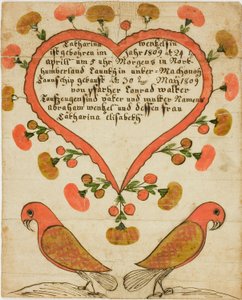 Catharina wentzelsin
ist gebohren im jahr 1809 d 24 t
aprill um 5 uhr Morgens in North
humberland Caunty in unter Machonoy
Taunschip getauft d 30 t May 1809
von pfarher Conrad walter
Taufzeugen sind vater und mutter Namens
abraham wentzel und dessen frau
Catharina elisabeth